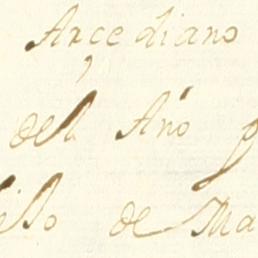 Arcediano
del Año
de Ma